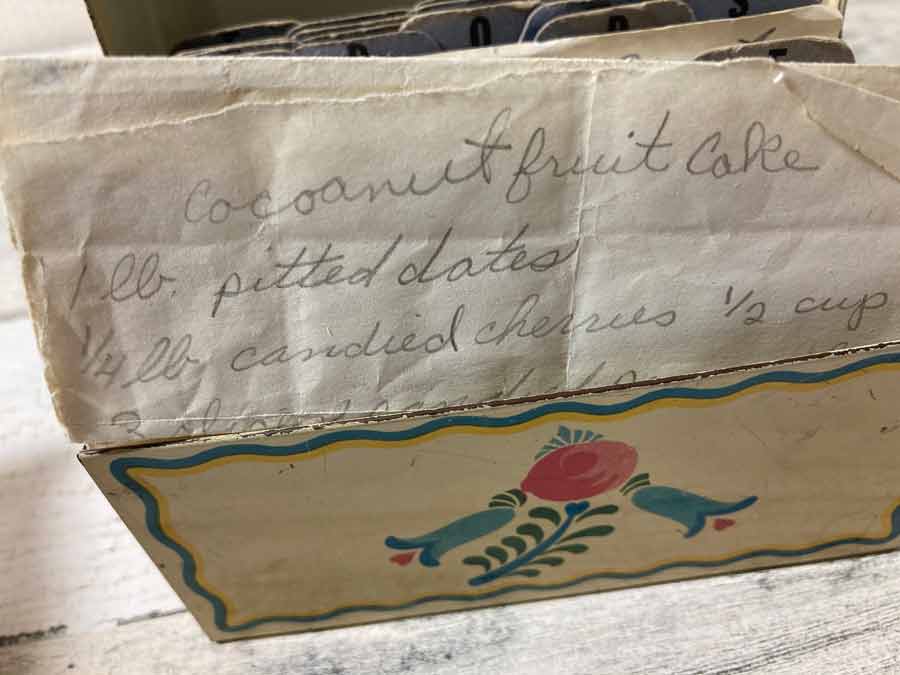 O
R
S
T
Cocoanut fruit Cake
1 lb. pitted dates
1/4 lb candied cherries 1/2 cup
3 slices